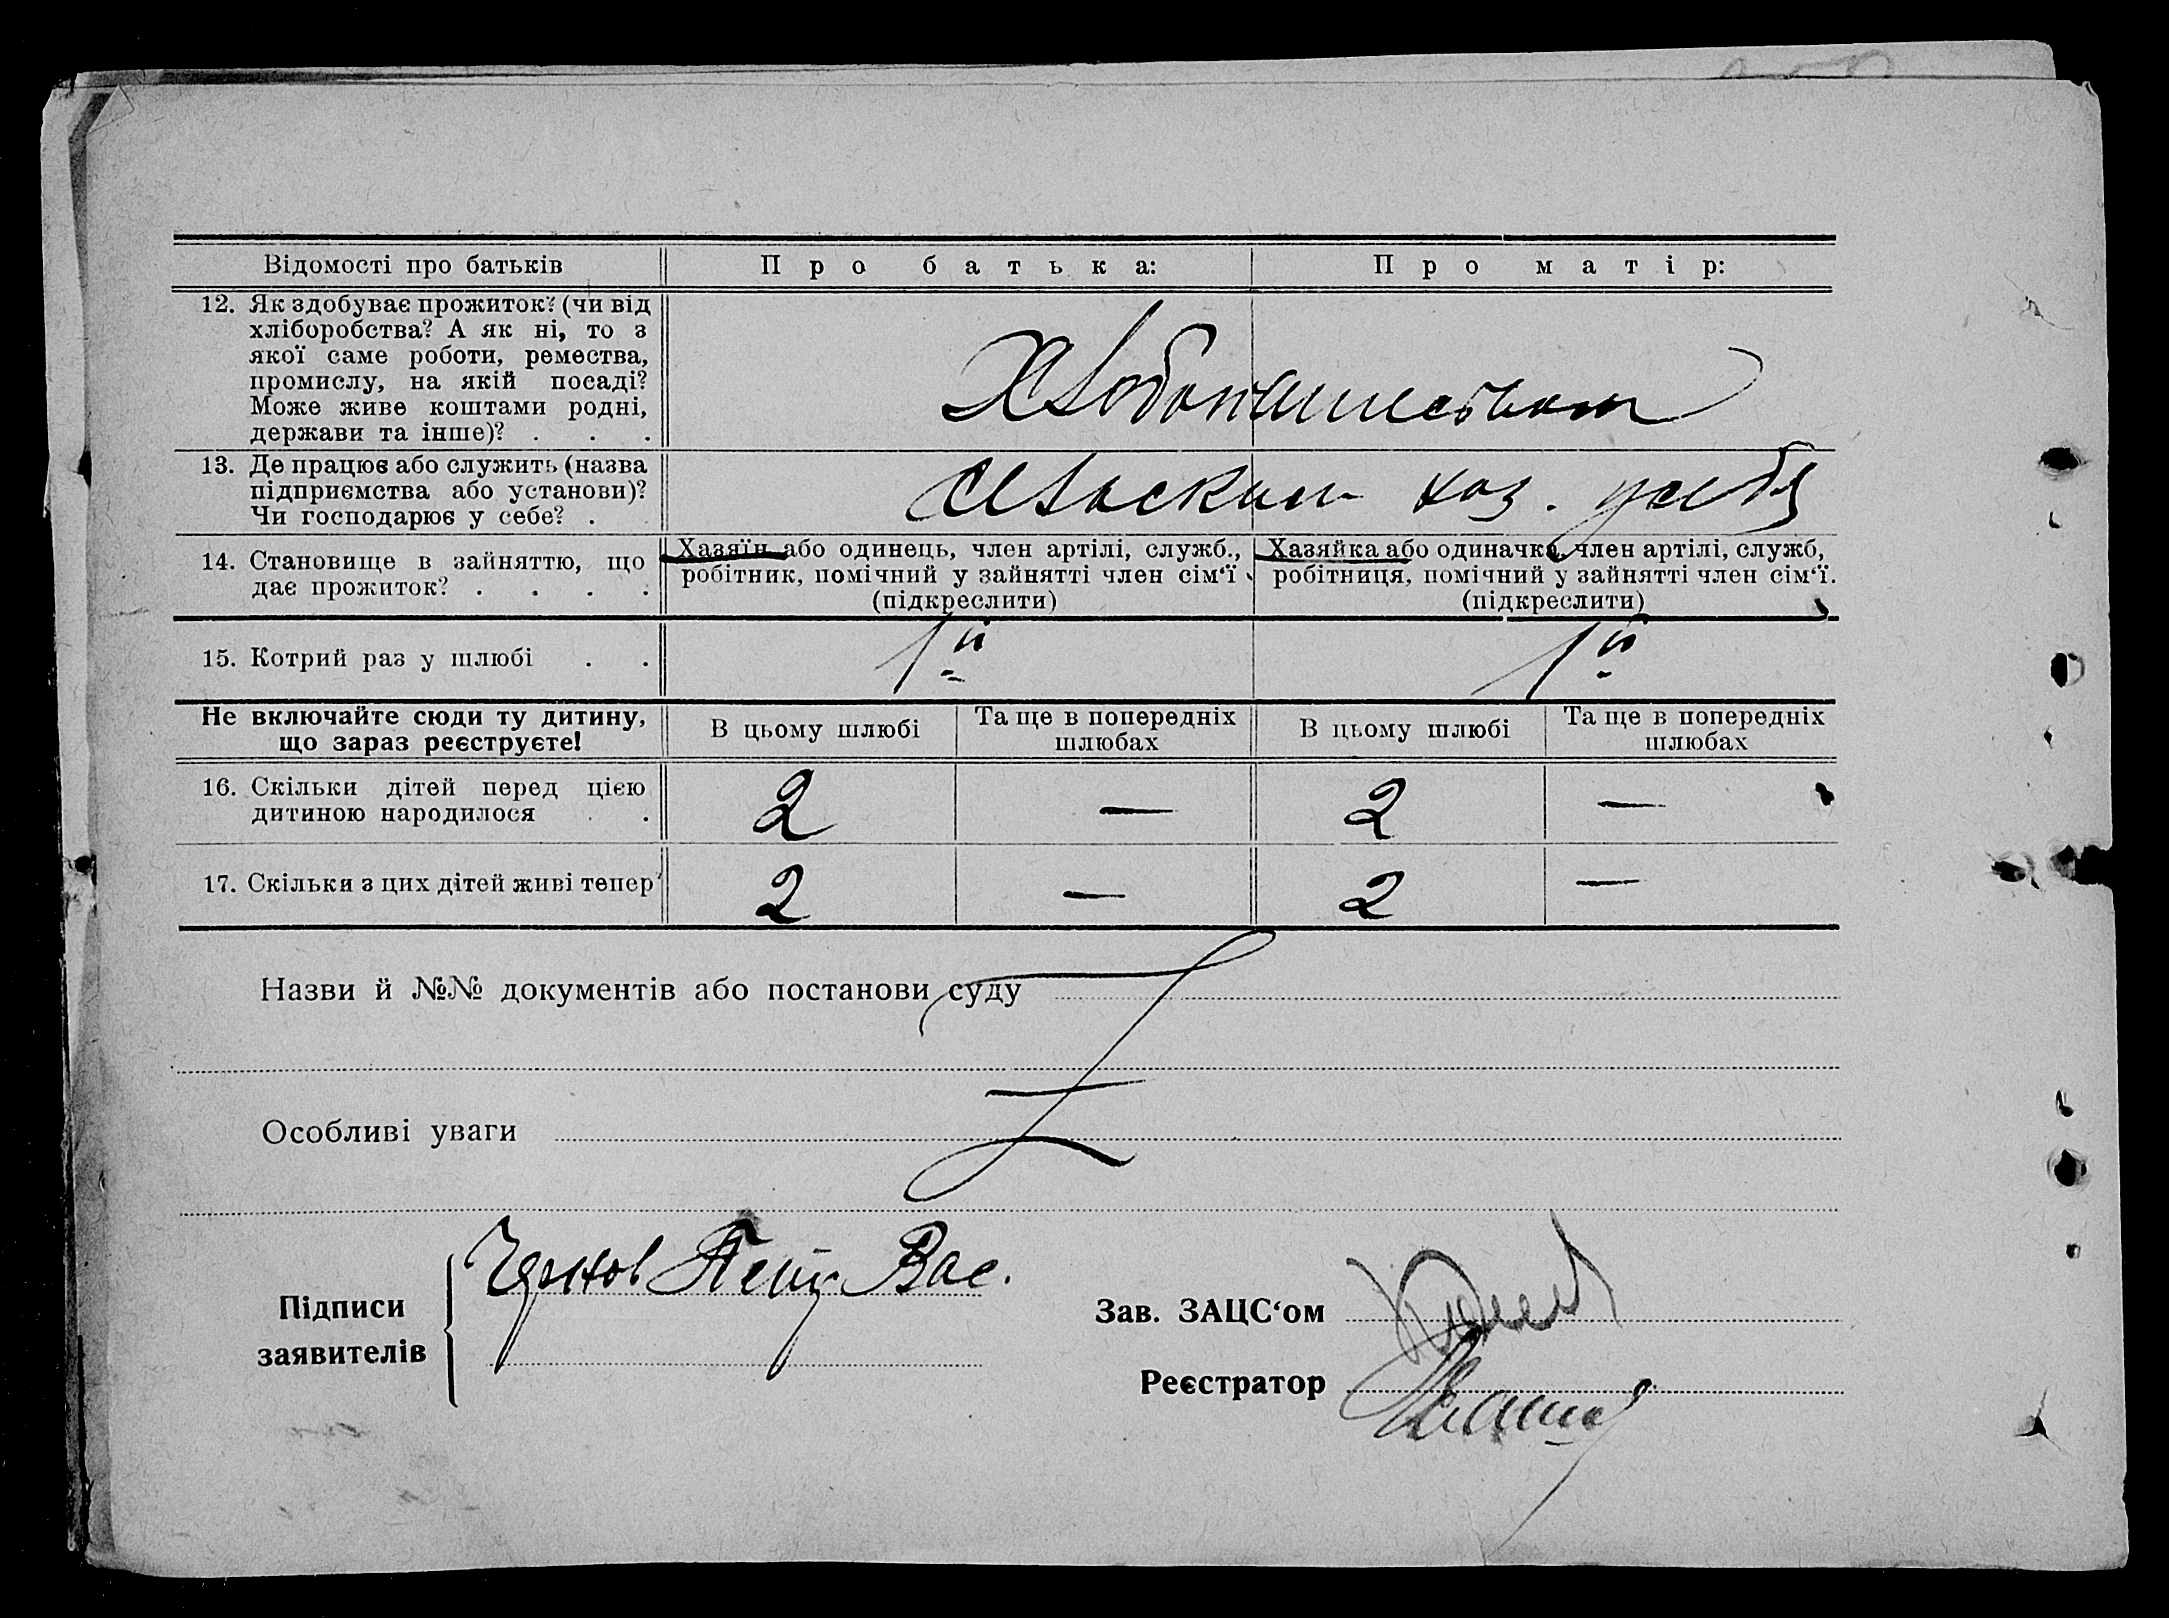 Відомості про батьків
Про батька:
Про матір:
12. Як здобуває прожиток? (чи від
хліборобства? А як ні, то з
якої саме роботи, ремества,
промислу, на якій посаді?
Може живе коштами родні,
держави та інше)? . . .
13. Де працює або служить (назва
підприємства або установи)?
Чи господарює у себе? .
хоз.
14. Становище в зайняттю, що
дає прожиток? . . . .
Хазяїн або одинець, член артілі, служб.,
робітник, помічний у зайнятті член сім‘ї
(підкреслити)
Хазяйка або одиначка, член артілі, служб,
робітниця, помічний у зайнятті член сім‘ї.
(підкреслити)
15. Котрий раз у шлюбі . .
1й
1й
Не включайте сюди ту дитину,
що зараз реєструєте!
В цьому шлюбі
Та ще в попередніх
шлюбах
В цьому шлюбі
Та ще в попередніх
шлюбах
16. Скільки дітей перед цією
дитиною народилося . .
2 — 2 —
17. Скільки з цих дітей живі тепер?
2 — 2 —
Назви й №№ документів або постанови суду
Особливі уваги
Підписи
заявителів
Вас.
Зав. ЗАЦС‘ом
Реєстратор